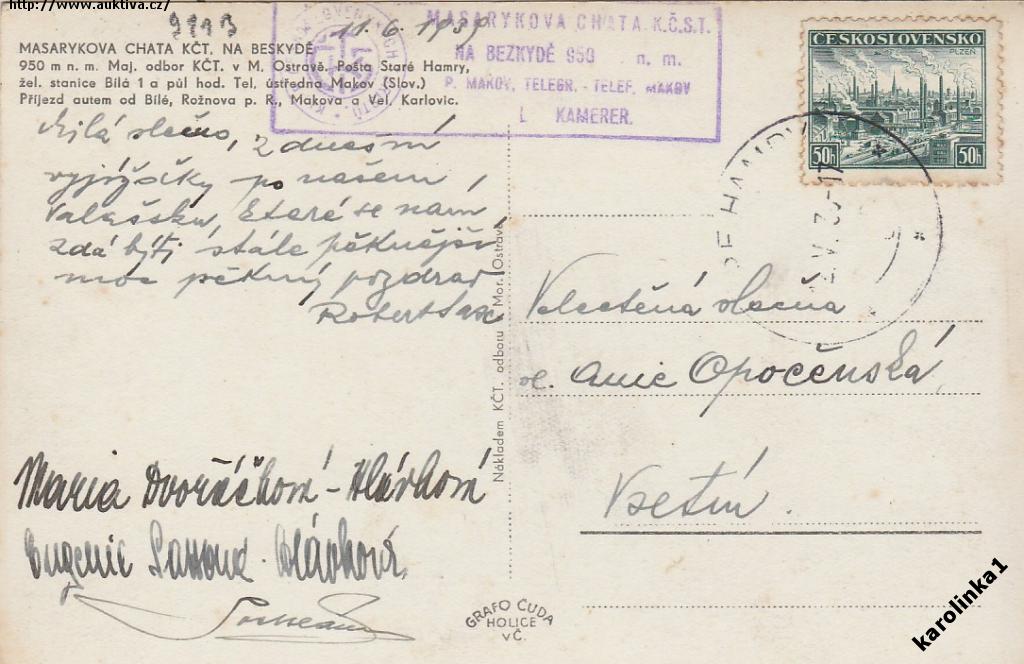 http://www.auktiva.cz/
11.6.1939
MASARYKOVA CHATA KČT. NA BESKYDĚ
950 m n. m. Maj. odbor KČT. v M. Ostravě. Pošta Staré Hamry,
žel. stanice Bílá 1 a půl hod. Tel. ústředna Makov (Slov.)
Příjezd autem od Bílé, Rožnova p. R., Makova a Vel. Karlovic.
MASARYKOVA CHATA K.Č.S.T.
NA BEZKYDĚ 950 n. m.
P. MAKOV, TELEGR. - TELEF. MAKOV
L KAMERER.
ČESKOSLOVENSKO
PLZEŇ
50h 50h
Milá slečno, z dnešní
vyjížďky po našem
Valašsku, které se nám
zdá býti stále pěknější
moc pěkný pozdrav
Robert
Velectěná slečna
sl. Anie Opočenská
Vsetín.
Maria Dvořáčková - Hlávková
Eugenie Hlávková
Nákladem KČT. odboru Mor. Ostravě
GRAFO ČUDA
HOLICE
V Č.
karolinka1